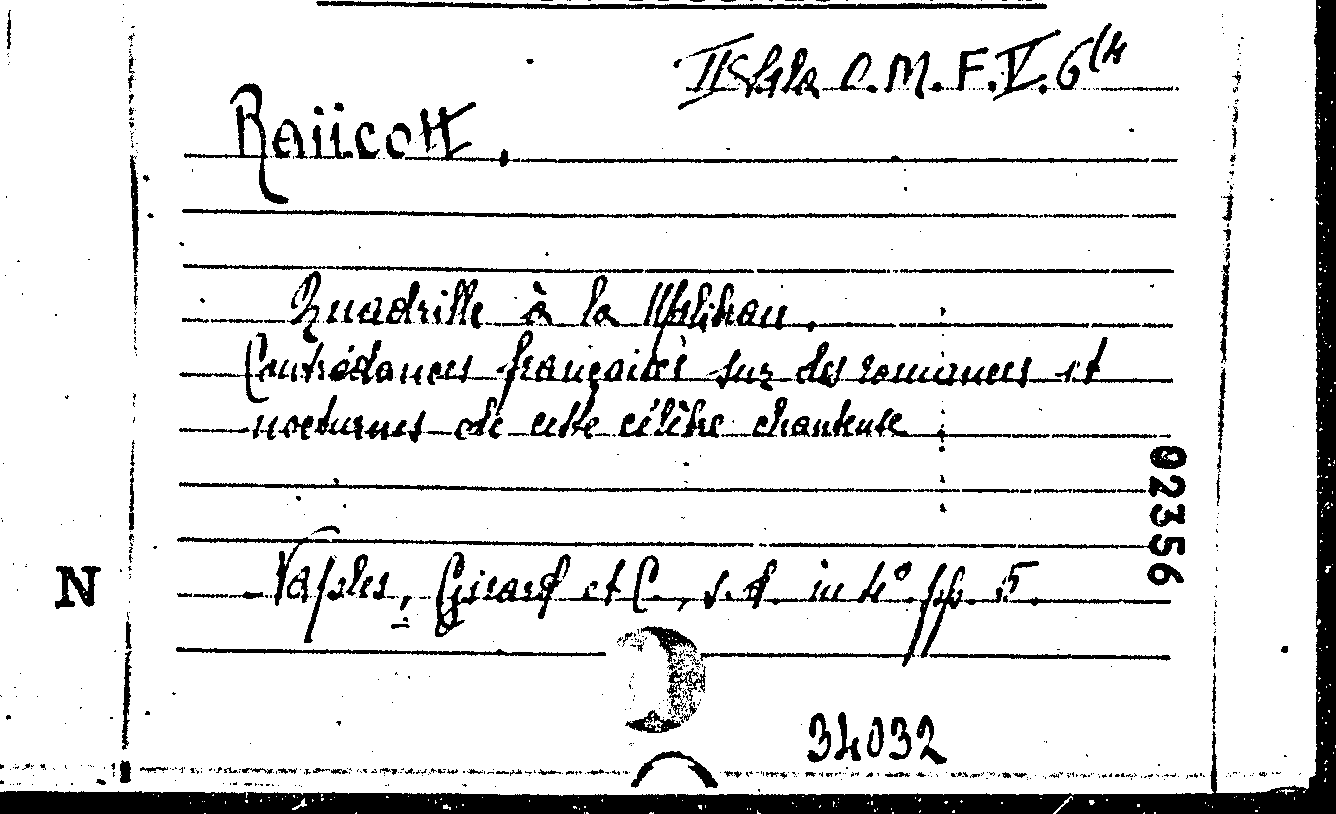 II Sala O.M.F.V. 6(4
Raiicott.
Quadrille à la Malibran.
Contredances françaises sur des romances et
nocturnes de cette célèbre chanteuse
02356
N
Naples, Girard et C., s.d. in 4° pp. 5.
34032